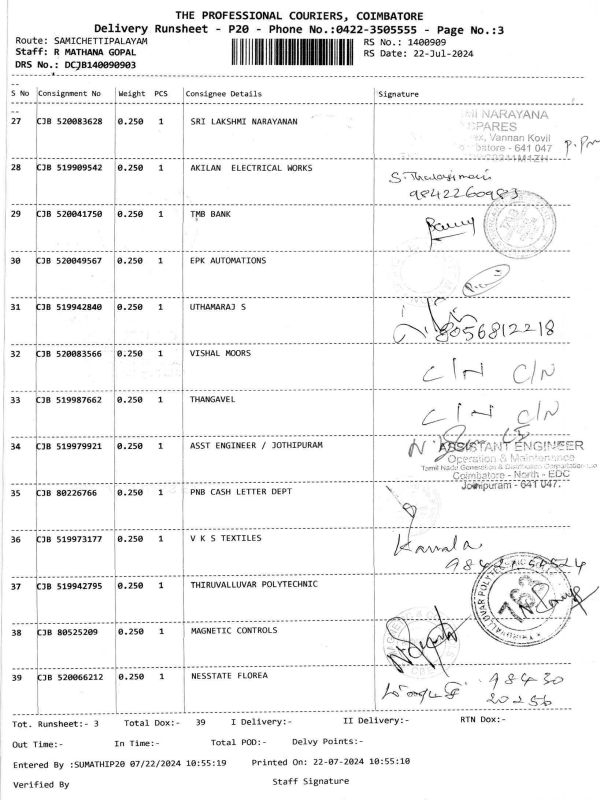 THE PROFESSIONAL COURIERS, COIMBATORE
Delivery Runsheet - P20 - Phone No.:0422-3505555 - Page No.:3
Route: SAMICHETTIPALAYAM RS No.: 1400909
Staff: R MATHANA GOPAL RS Date: 22-Jul-2024
DRS No.: DCJB140090903
S No Consignment No Weight PCS Consignee Details Signature
27 CJB 520083628 0.250 1 SRI LAKSHMI NARAYANAN
NARAYANA
SPARES
Vannan Kovil
641 047
28 CJB 519909542 0.250 1 AKILAN ELECTRICAL WORKS
9842260983
29 CJB 520041750 0.250 1 TMB BANK
30 CJB 520049567 0.250 1 EPK AUTOMATIONS
31 CJB 519942840 0.250 1 UTHAMARAJ S
8056812218
32 CJB 520083566 0.250 1 VISHAL MOORS C/N C/N
33 CJB 519987662 0.250 1 THANGAVEL C/N C/N
34 CJB 519979921 0.250 1 ASST ENGINEER / JOTHIPURAM
ASSISTANT ENGINEER
Operation & Maintenance
Tamil Nadu Generation & Distribution Corporation Ltd
Coimbatore - North - EDC
Jothipuram - 641 047.
35 CJB 80226766 0.250 1 PNB CASH LETTER DEPT
36 CJB 519973177 0.250 1 V K S TEXTILES Kamala
37 CJB 519942795 0.250 1 THIRUVALLUVAR POLYTECHNIC
38 CJB 80525209 0.250 1 MAGNETIC CONTROLS
39 CJB 520066212 0.250 1 NESSTATE FLOREA 98430
20256
Tot. Runsheet:- 3 Total Dox:- 39 I Delivery:- II Delivery:- RTN Dox:-
Out Time:- In Time:- Total POD:- Delvy Points:-
Entered By :SUMATHIP20 07/22/2024 10:55:19 Printed On: 22-07-2024 10:55:10
Verified By Staff Signature